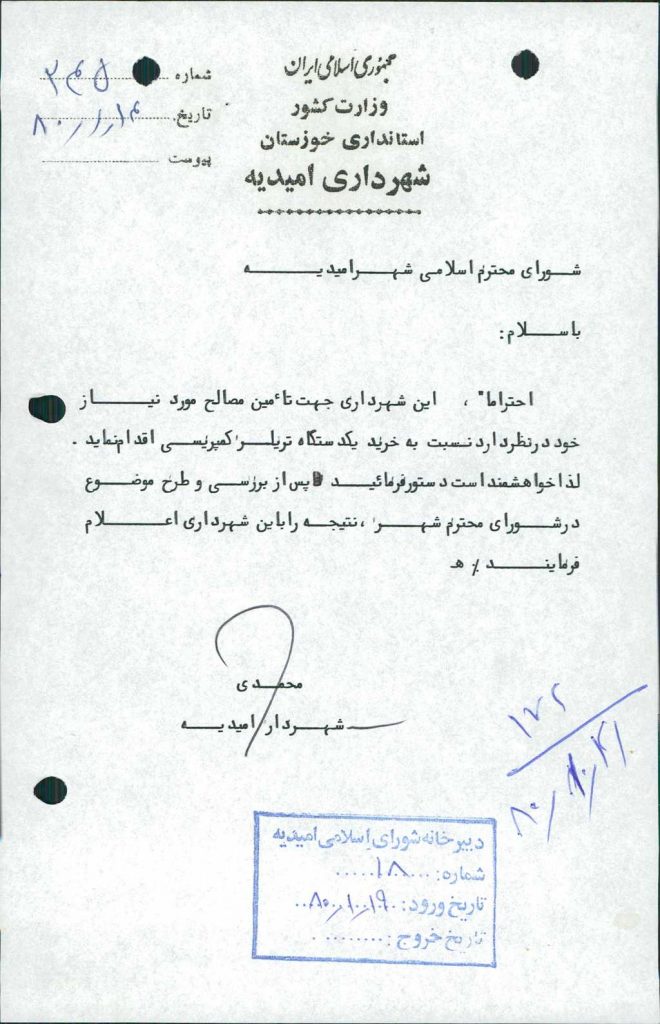 جمهوری اسلامی ایران
وزارت کشور
استانداری خوزستان
شهرداری امیدیه
شماره
تاریخ
پیوست
شورای محترم اسلامی شهرامیدیه
باسلام:
احتراما" ، این شهرداری جهت تأمین مصالح مورد نیاز
خود درنظردارد نسبت به خرید یکدستگاه تریلر کمپرسی اقدام نماید .
لذا خواهشمند است دستور فرمائید پس از بررسی و طرح موضوع
درشورای محترم شهر ، نتیجه را باین شهرداری اعلام
فرمایند ٪ هـ
محمدی
شهردار امیدیه
۱۷۲
دبیرخانه شورای اسلامی امیدیه
شماره: ۱۸۰
تاریخ ورود: ۸۰/۱۰/۱۹
تاریخ خروج: